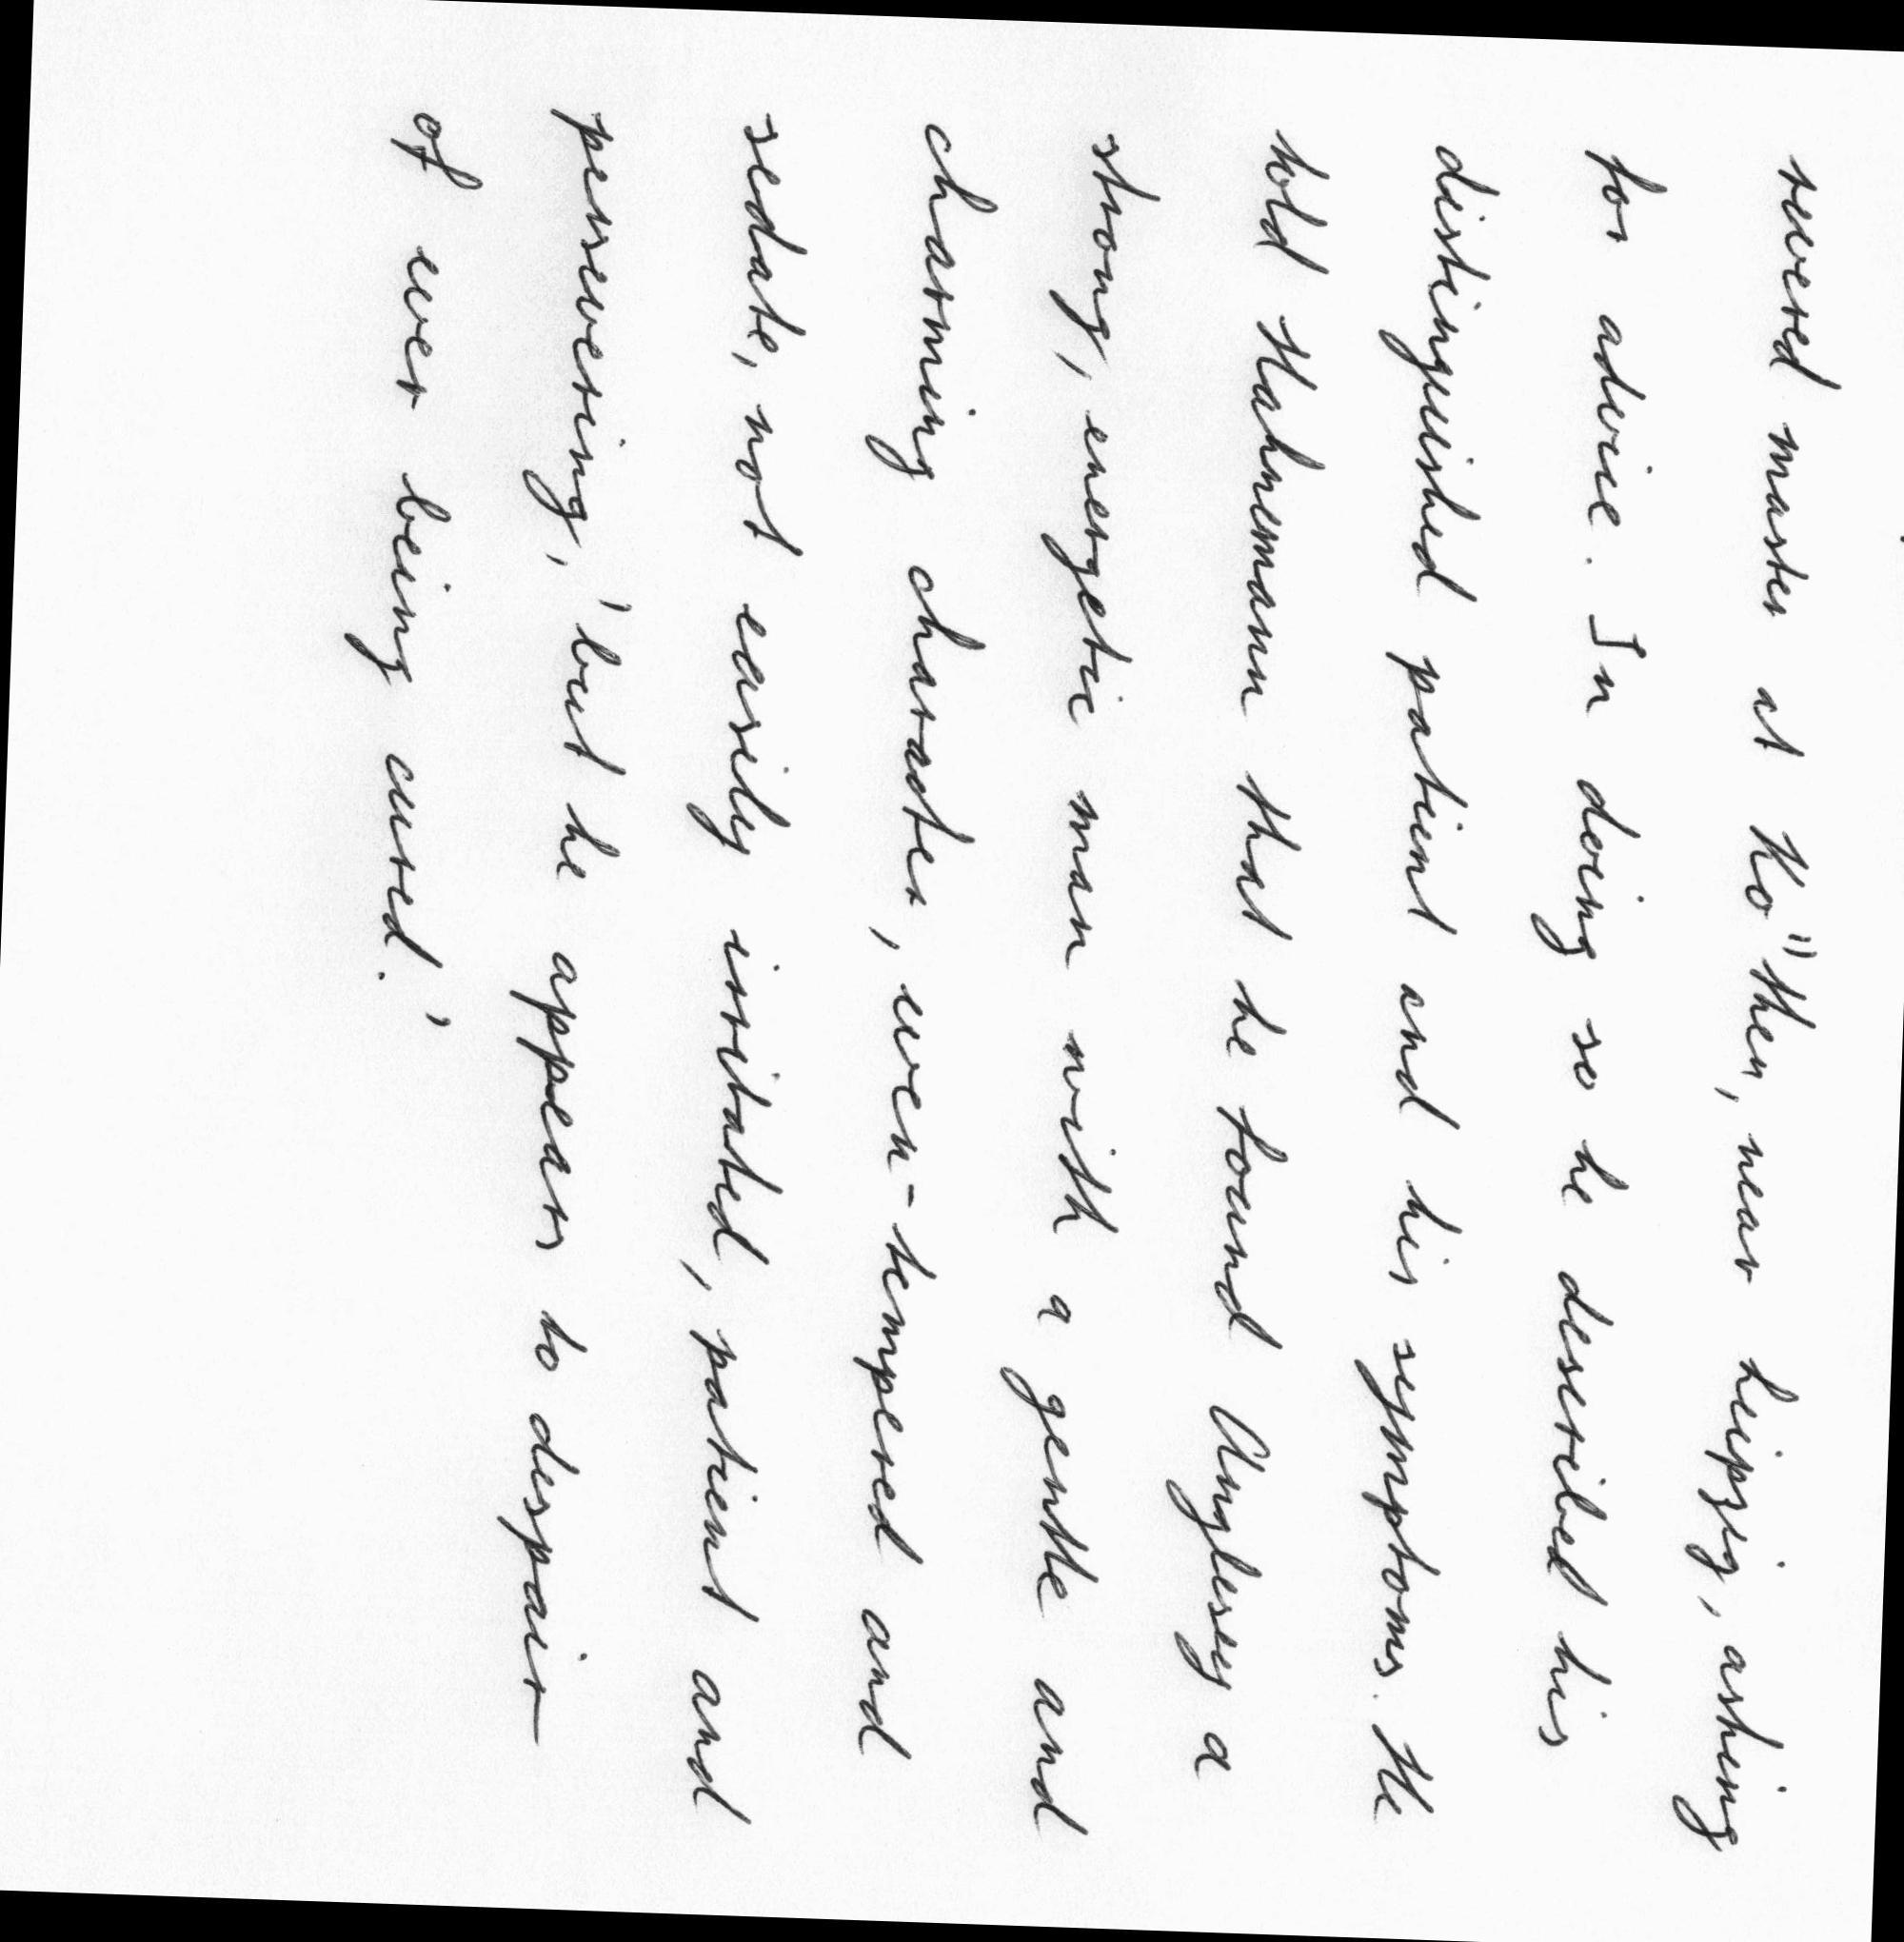 revered master at Ko"then, near Leipzig, asking
for advice. In doing so he described his
distinguished patient and his symptoms. He
told Hahnemann that he found Anglesey a
strong, energetic man with a gentle and
charming character, even-tempered and
sedate, not easily irritated, patient and
persevering, 'but he appears to despair
of ever being cured.'